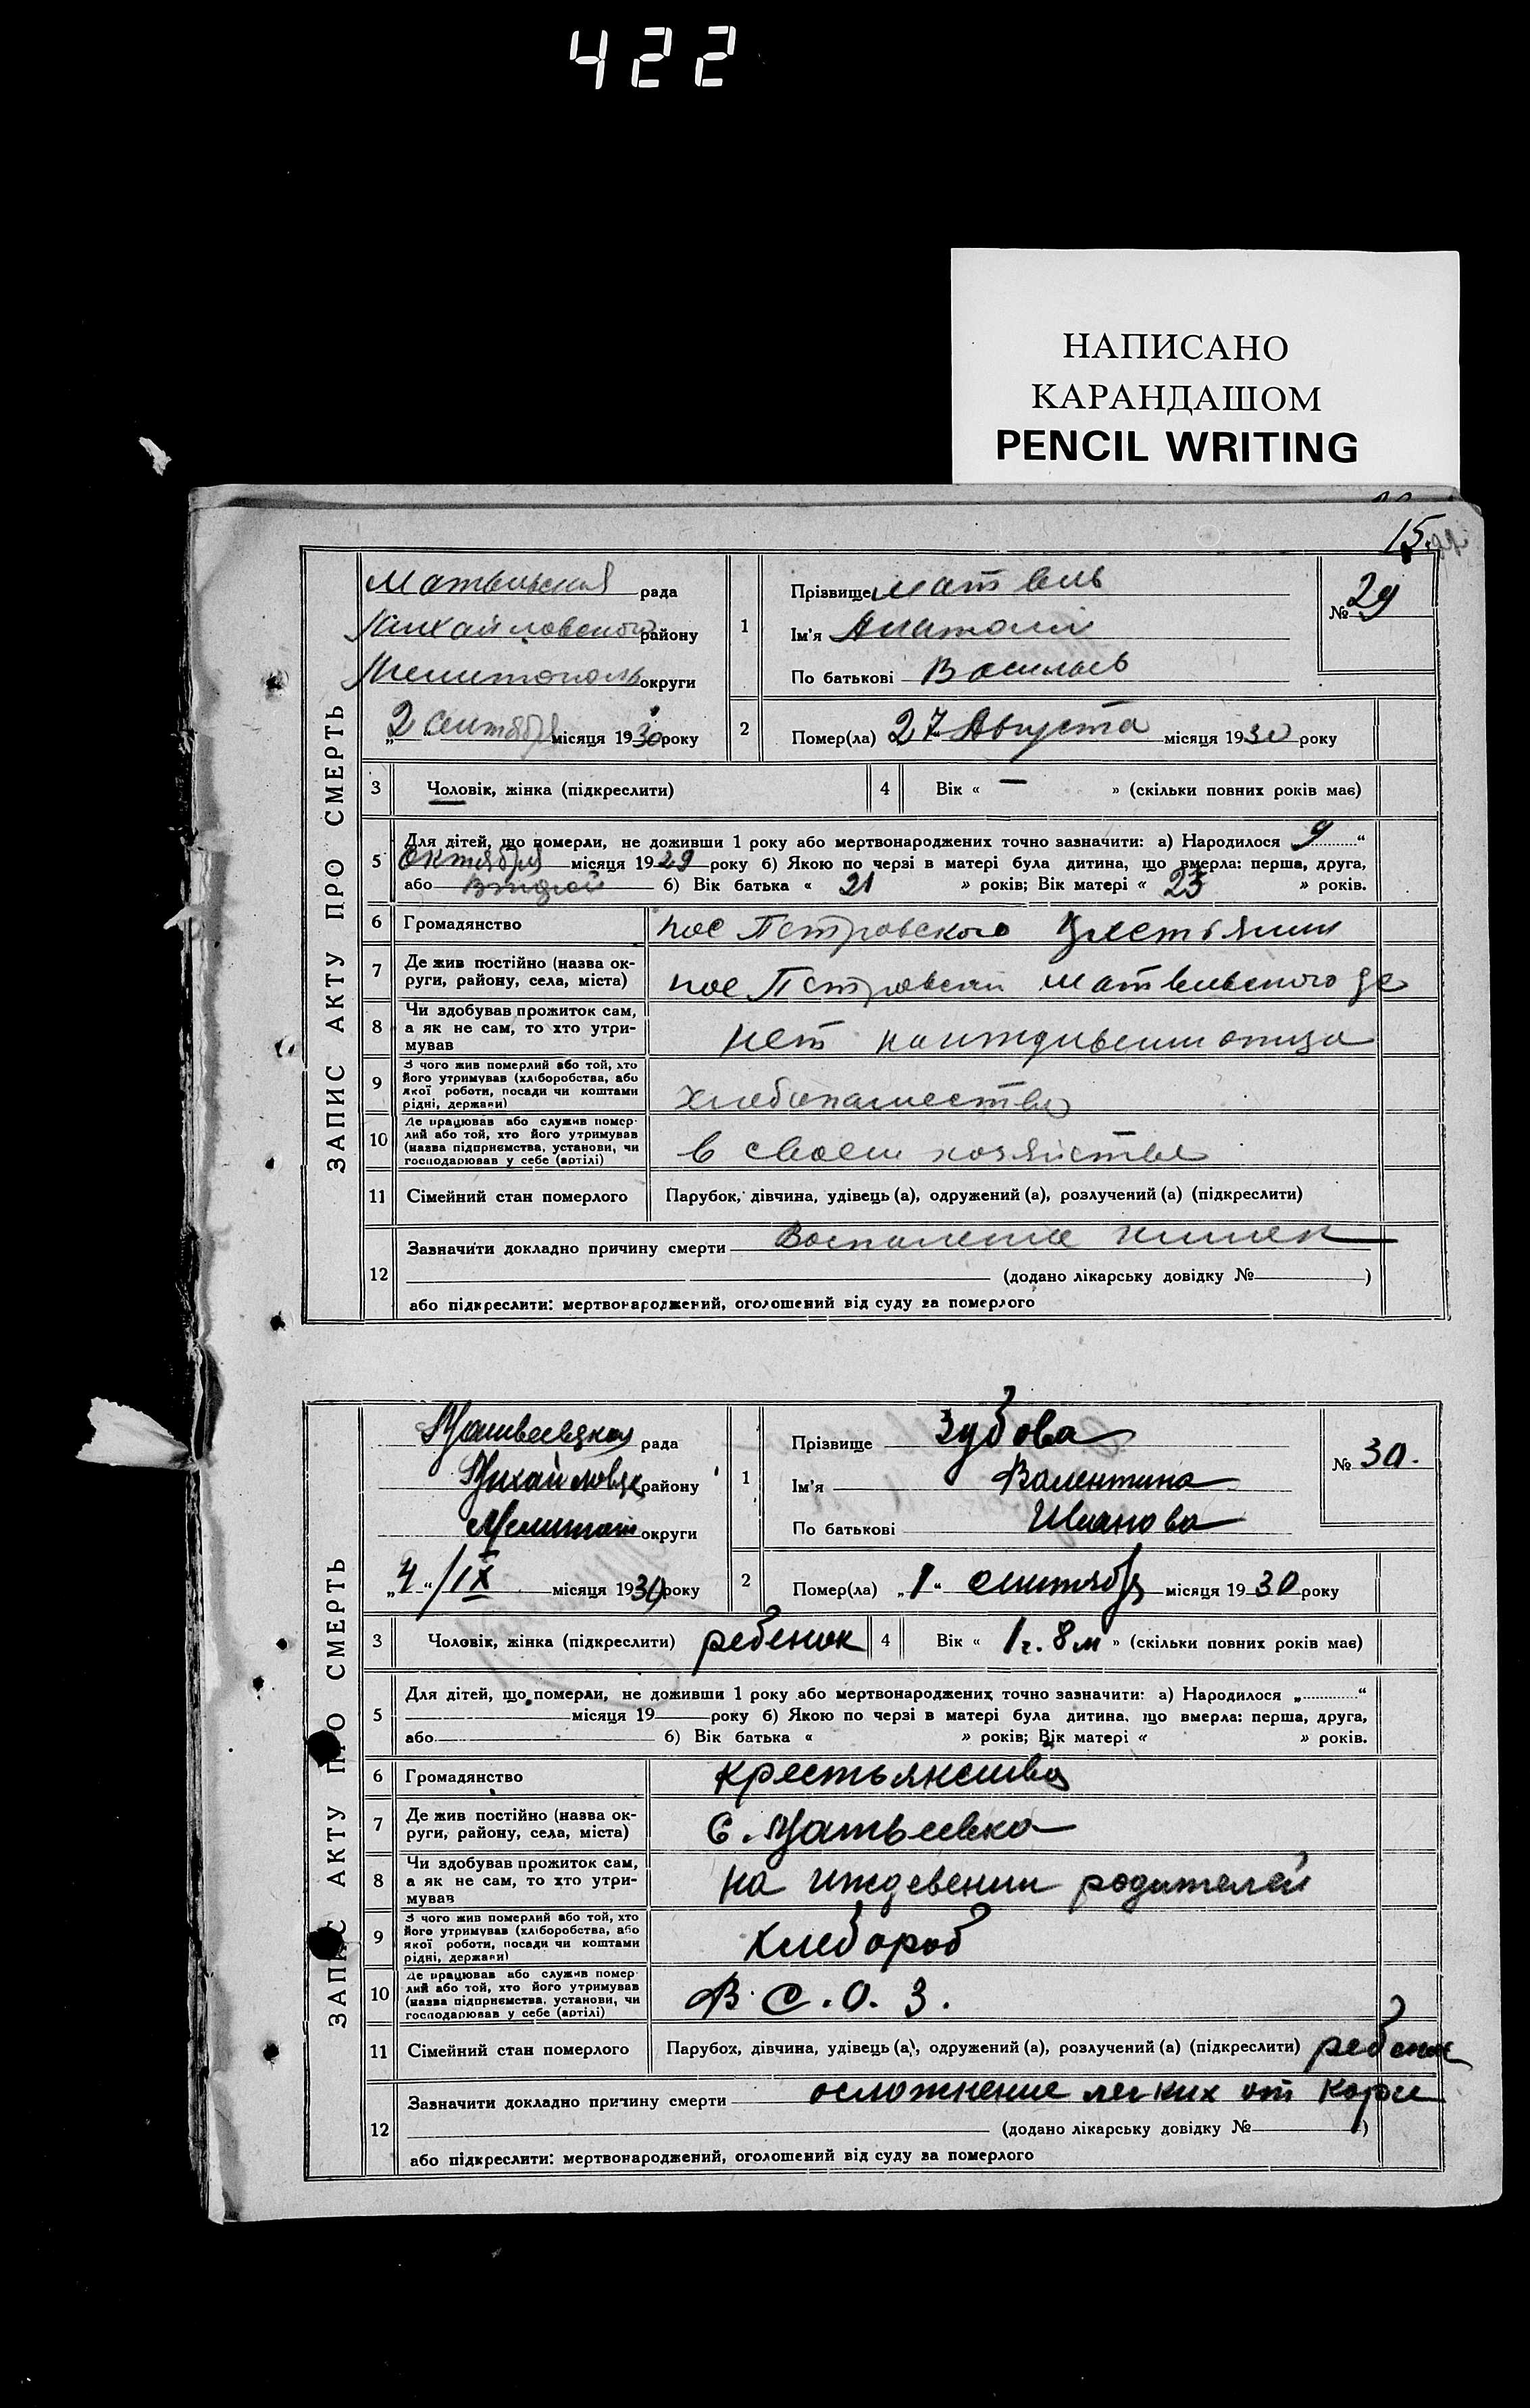 422
НАПИСАНО
КАРАНДАШОМ
PENCIL WRITING
15.
ЗАПИС АКТУ ПРО СМЕРТЬ
рада
Михайловского району
Мелитополь округи
2 Сентября місяця 1930 року
1
Прізвище
Ім'я Анатолий
По батькові
№ 29
2
Помер(ла) 27 Августа місяця 1930 року
3 Чоловік, жінка (підкреслити)
4 Вік « — » (скільки повних років має)
5
Для дітей, що померли, не доживши 1 року або мертвонароджених точно зазначити: а) Народилося 9 “
октября місяця 1929 року б) Якою по черзі в матері була дитина, що вмерла: перша, друга,
або второй б) Вік батька « 21 » років; Вік матері « 23 » років.
6 Громадянство
пос Петровского
7
Де жив постійно (назва ок-
руги, району, села, міста)
пос Петровский
8
Чи здобував прожиток сам,
а як не сам, то хто утри-
мував
нет на иждивении отца
9
З чого жив померлий або той, хто
його утримував (хліборобства, або
якої роботи, посади чи коштами
рідні, держави)
хлебопашество
10
Де працював або служив помер-
лий або той, хто його утримував
(назва підприємства, установи, чи
господарював у себе (артілі)
в своем хозяйстве
11 Сімейний стан померлого
Парубок, дівчина, удівець (а), одружений (а), розлучений (а) (підкреслити)
12
Зазначити докладно причину смерти Воспаление кишек
(додано лікарську довідку № )
або підкреслити: мертвонароджений, оголошений від суду за померлого
ЗАПИС АКТУ ПРО СМЕРТЬ
рада
району
округи
„4“/IX місяця 1930 року
1
Прізвище Зубова
Ім'я Валентина
По батькові Иванова
№ 30.
2
Помер(ла) „1“ сентября місяця 1930 року
3 Чоловік, жінка (підкреслити) ребенок
4 Вік « 1 г. 8 м » (скільки повних років має)
5
Для дітей, що померли, не доживши 1 року або мертвонароджених точно зазначити: а) Народилося „ “
місяця 19 року б) Якою по черзі в матері була дитина, що вмерла: перша, друга,
або б) Вік батька « » років; Вік матері « » років.
6 Громадянство
крестьянства
7
Де жив постійно (назва ок-
руги, району, села, міста)
С. Матвеевка
8
Чи здобував прожиток сам,
а як не сам, то хто утри-
мував
на иждевении родителей
9
З чого жив померлий або той, хто
його утримував (хліборобства, або
якої роботи, посади чи коштами
рідні, держави)
хлебороб
10
Де працював або служив помер
лий або той, хто його утримував
(назва підприємства, установи, чи
господарював у себе (артілі)
В. С. О. З.
11 Сімейний стан померлого
Парубох, дівчина, удівець (а), одружений (а), розлучений (а) (підкреслити) ребенок
12
Зазначити докладно причину смерти осложнение легких от кори
(додано лікарську довідку № )
або підкреслити: мертвонароджений, оголошений від суду за померлого